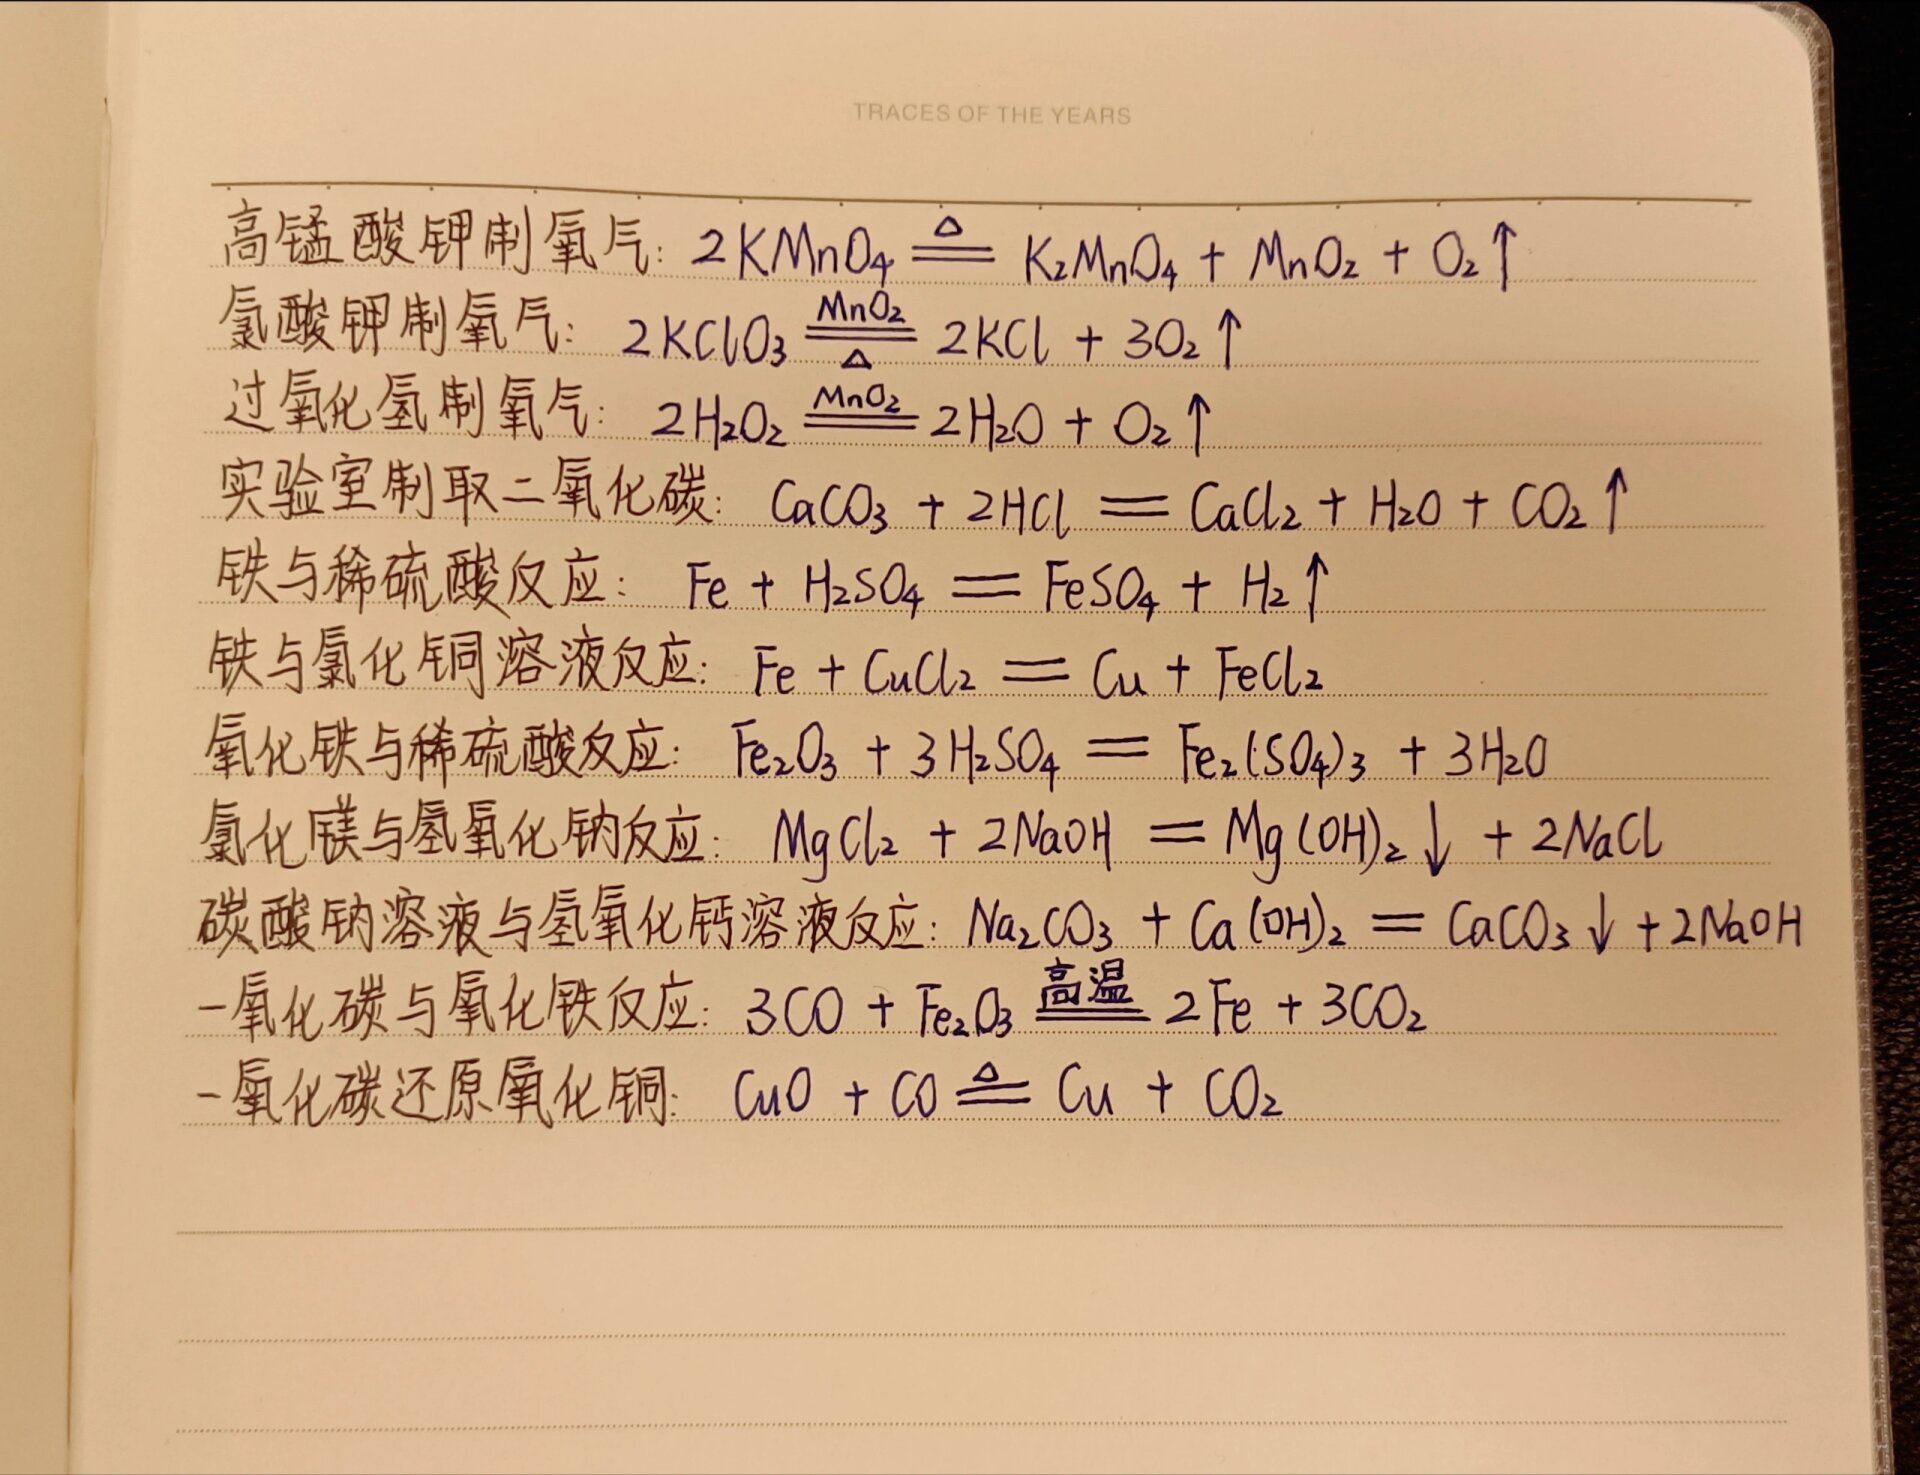 TRACES OF THE YEARS
高锰酸钾制氧气: 2KMnO₄ ≜ K₂MnO₄ + MnO₂ + O₂↑
氯酸钾制氧气: 2KClO₃ =MnO₂/△= 2KCl + 3O₂↑
过氧化氢制氧气: 2H₂O₂ =MnO₂= 2H₂O + O₂↑
实验室制取二氧化碳: CaCO₃ + 2HCl = CaCl₂ + H₂O + CO₂↑
铁与稀硫酸反应: Fe + H₂SO₄ = FeSO₄ + H₂↑
铁与氯化铜溶液反应: Fe + CuCl₂ = Cu + FeCl₂
氧化铁与稀硫酸反应: Fe₂O₃ + 3H₂SO₄ = Fe₂(SO₄)₃ + 3H₂O
氯化镁与氢氧化钠反应: MgCl₂ + 2NaOH = Mg(OH)₂↓ + 2NaCl
碳酸钠溶液与氢氧化钙溶液反应: Na₂CO₃ + Ca(OH)₂ = CaCO₃↓ + 2NaOH
一氧化碳与氧化铁反应: 3CO + Fe₂O₃ =高温= 2Fe + 3CO₂
一氧化碳还原氧化铜: CuO + CO ≜ Cu + CO₂